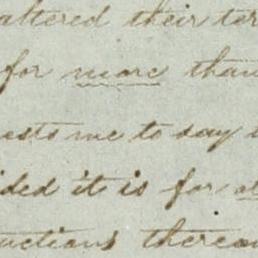 altered their ter
for more than
ests me to say
ided it is for
uctions thereon